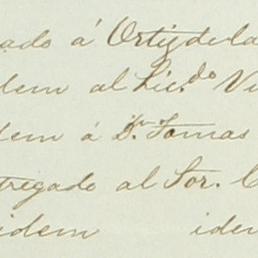 ado á Ortiz de la
dem al Lic.do Vi
dem á Dn. Tomas
tregado al Sor. C
idem iden